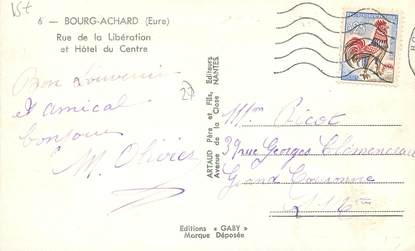 15t
6 — BOURG-ACHARD (Eure)
Rue de la Libération
et Hôtel du Centre
Bon Souvenir
et amical
bonjour
M. Olivier
27
ARTAUD Père et Fils, Editeurs
Avenue de la Close NANTES
Mme Picot
39 rue Georges Clémenceau
Grand Couronne
S. Mme
Editions « GABY »
Marque Déposée